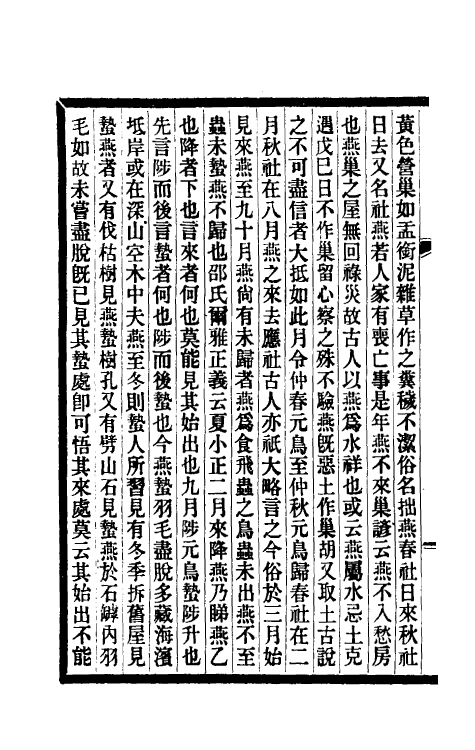 黃色營巢如盂銜泥雜草作之糞穢不潔俗名拙燕春社日來秋社
日去又名社燕若人家有喪亡事是年燕不來巢諺云燕不入愁房
也燕巢之屋無回祿災故古人以燕爲水祥也或云燕屬水忌土克
遇戊巳日不作巢留心察之殊不驗燕旣惡土作巢胡又取土古說
之不可盡信者大抵如此月令仲春元鳥至仲秋元鳥歸春社在二
月秋社在八月燕之來去應社古人亦祇大略言之今俗於三月始
見來燕至九十月燕尙有未歸者燕爲食飛蟲之鳥蟲未出燕不至
蟲未蟄燕不歸也邵氏爾雅正義云夏小正二月來降燕乃睇燕乙
也降者下也言來者何也莫能見其始出也九月陟元鳥蟄陟升也
先言陟而後言蟄者何也陟而後蟄也今燕蟄羽毛盡脫多藏海濱
坻岸或在深山空木中夫燕至冬則蟄人所習見有冬季拆舊屋見
蟄燕者又有伐枯樹見燕蟄樹孔又有劈山石見蟄燕於石罅內羽
毛如故未嘗盡脫旣已見其蟄處卽可悟其來處莫云其始出不能